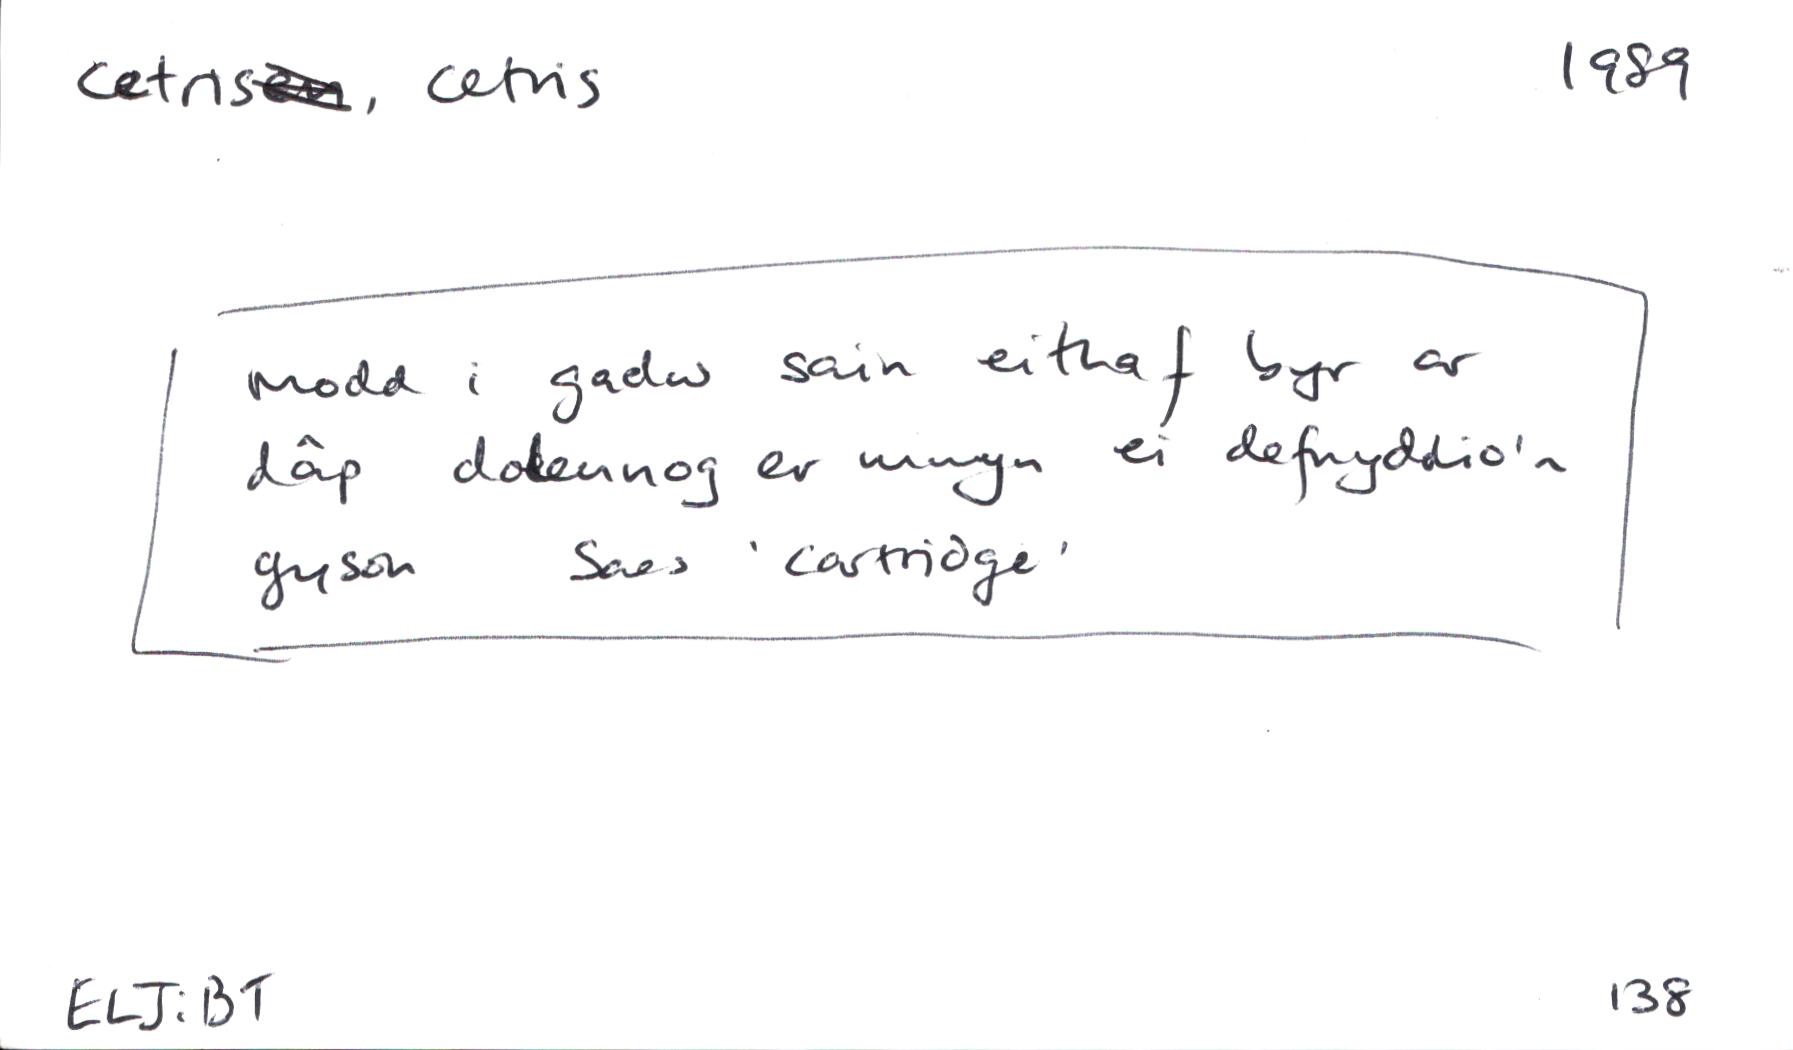 cetris, cetris 1989
modd i gadw sain eithaf byr ar
dâp dolennog er mwyn ei defnyddio'n
gyson Saes 'cartridge'
ELJ:BT 138